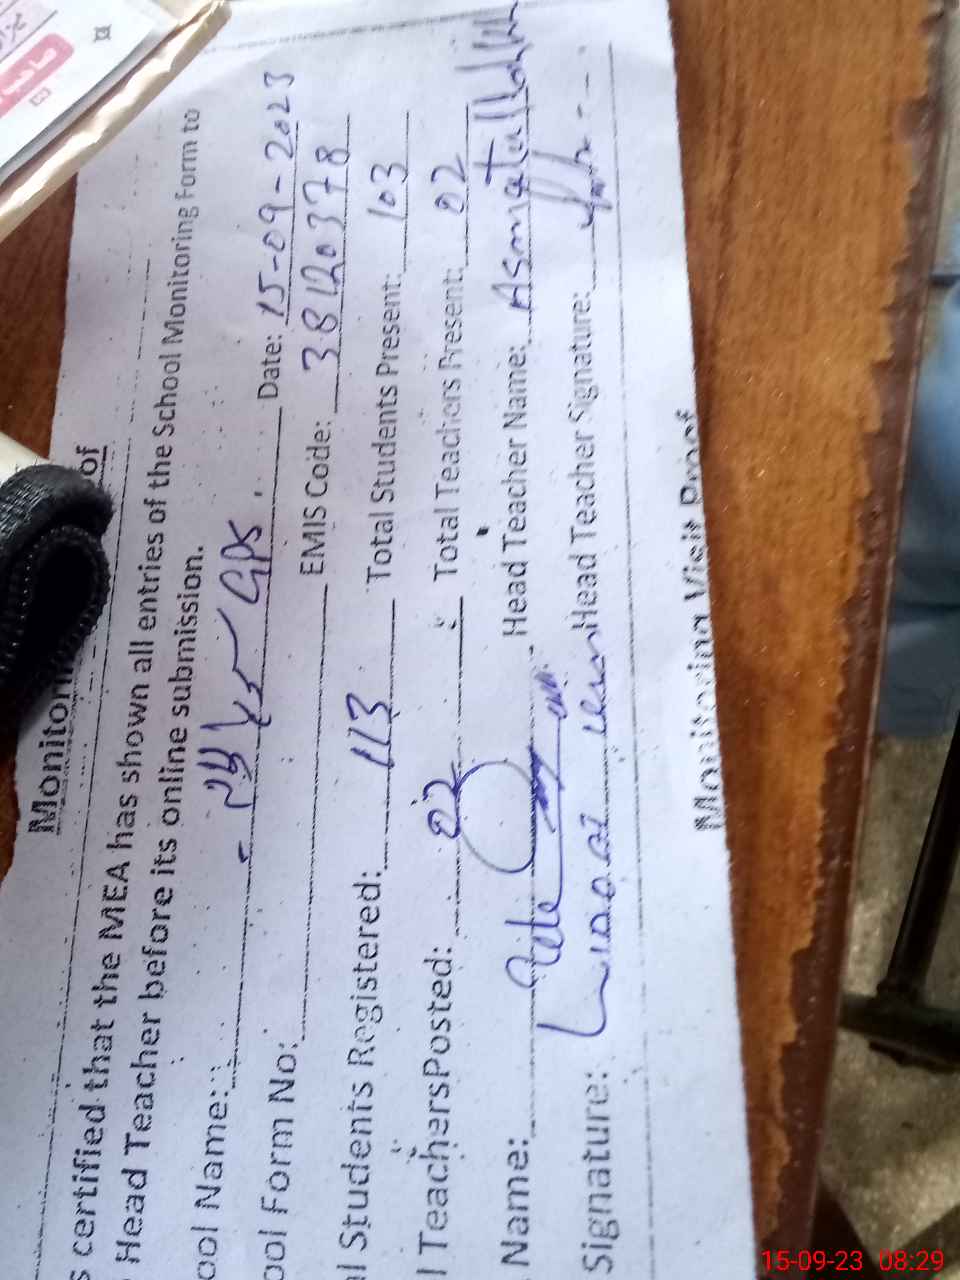 Monitor of
s certified that the MEA has shown all entries of the School Monitoring Form to
Head Teacher before its online submission.
ool Name: GPS Date: 15-09-2023
ool Form No: EMIS Code: 38120378
l Students Registered: 113 Total Students Present: 103
l Teachers Posted: 02 Total Teachers Present: 02
Name: Head Teacher Name: Asmatullah
Signature: Head Teacher Signature:
Monitoring Visit Proof
15-09-23 08:29